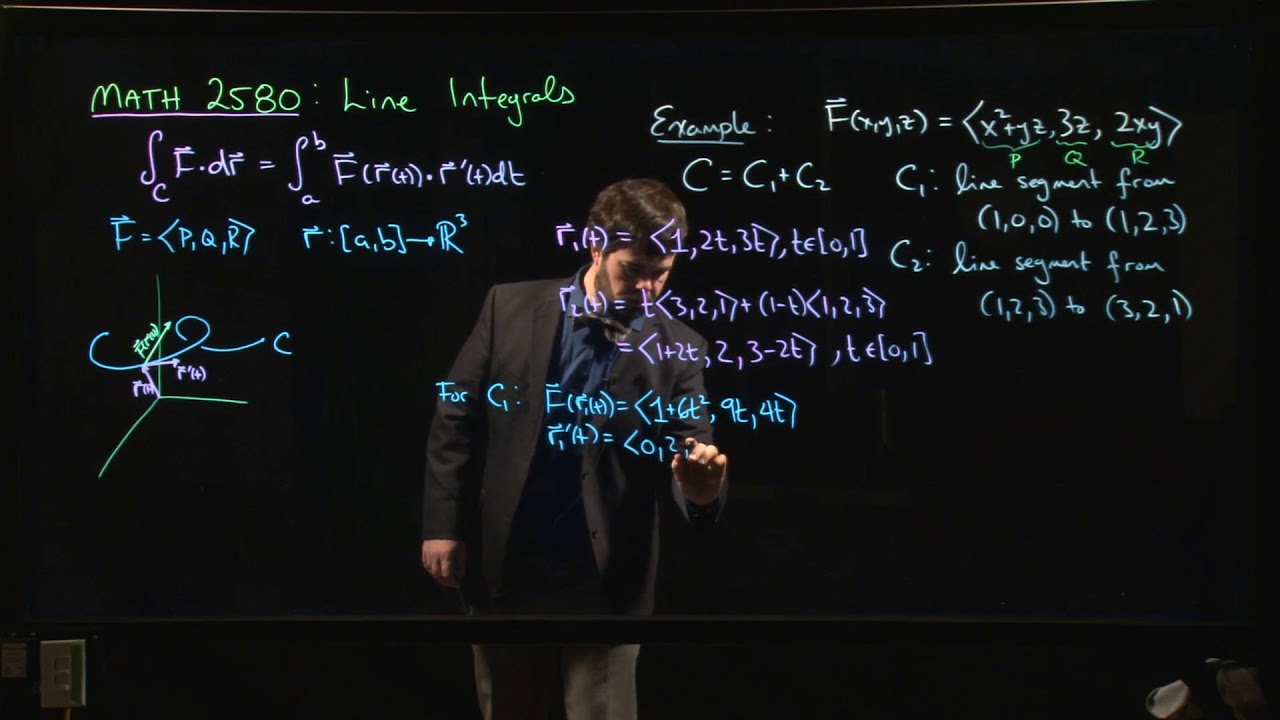 MATH 2580: Line Integrals
∫_C F⃗·dr⃗ = ∫_a^b F⃗(r⃗(t))·r⃗'(t)dt
F⃗ = ⟨P,Q,R⟩ r⃗:[a,b]→ℝ³
F⃗(r⃗(t))
C
r⃗'(t)
r⃗(t)
Example: F⃗(x,y,z) = ⟨x²+yz, 3z, 2xy⟩
P Q R
C = C₁+C₂
C₁: line segment from
(1,0,0) to (1,2,3)
C₂: line segment from
(1,2,3) to (3,2,1)
r⃗₁(t) = ⟨1,2t,3t⟩, t∈[0,1]
r⃗₂(t) = t⟨3,2,1⟩+(1-t)⟨1,2,3⟩
= ⟨1+2t, 2, 3-2t⟩, t∈[0,1]
For C₁: F⃗(r⃗₁(t)) = ⟨1+6t², 9t, 4t⟩
r⃗₁'(t) = ⟨0,2,